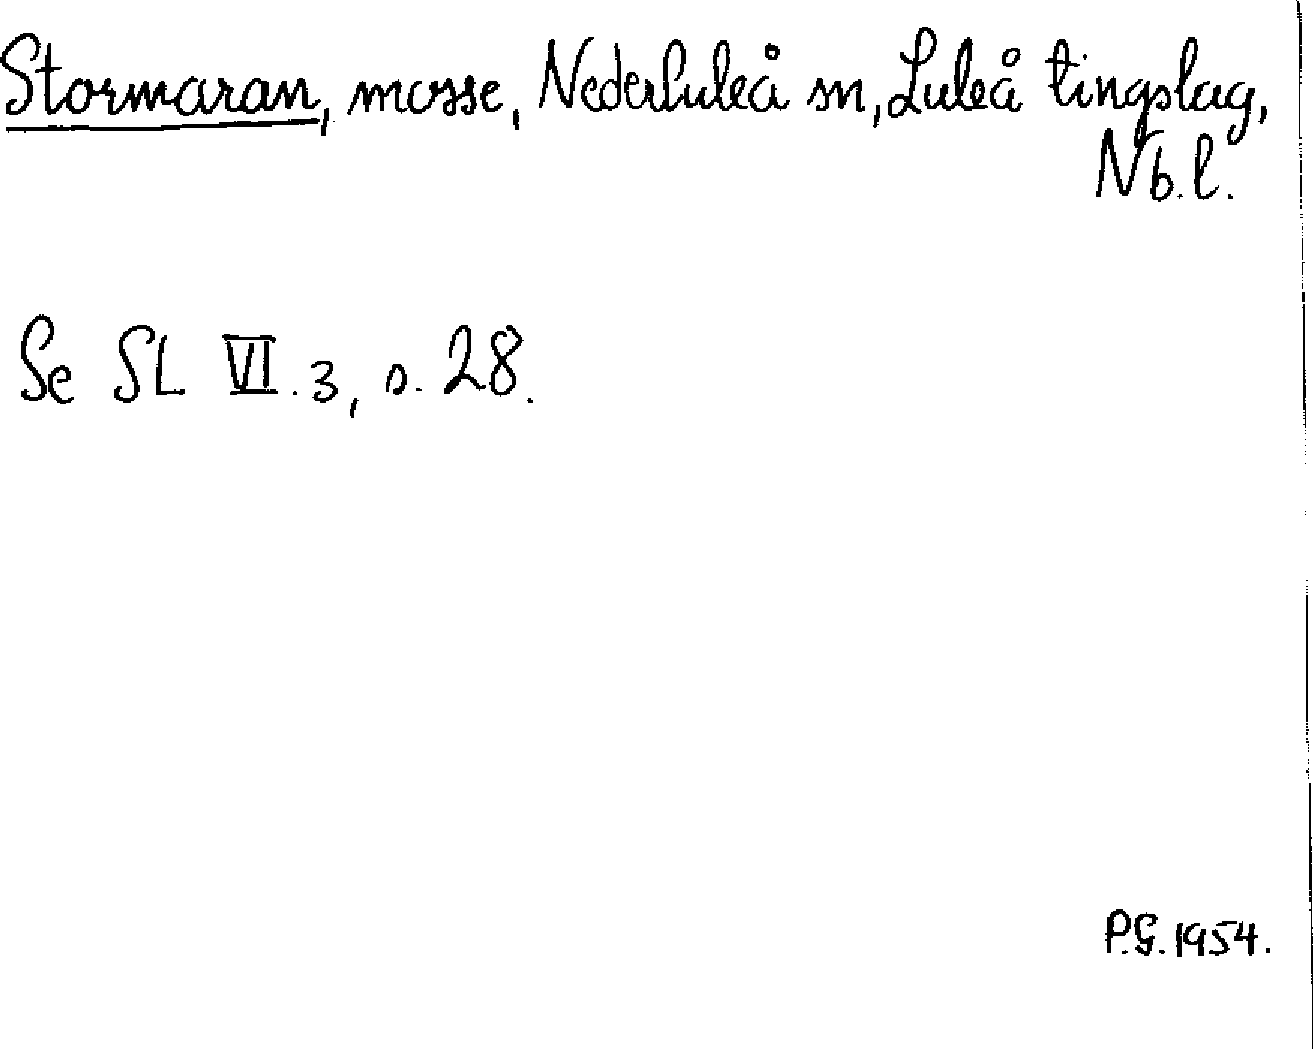 Stormaran, mosse, Nederluleå sn, Luleå tingslag,
Nb.l.
Se SL VI.3, s. 28.
P.G. 1954.